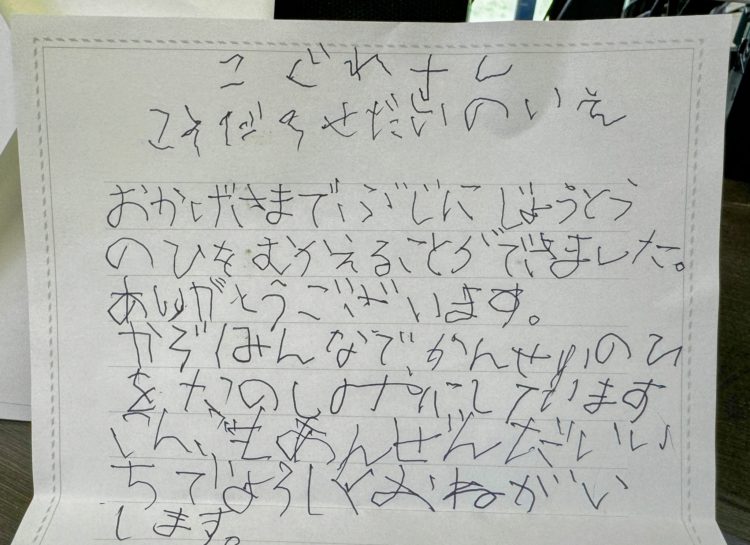 こぐれさん
こそだてせだいのいえ
おかげさまでぶじにじょうとう
のひをむかえることができました。
ありがとうございます。
かぞくみんなでかんせいのひ
をたのしみにしています
あんぜんだいい
ちでよろしくおねがい
します。